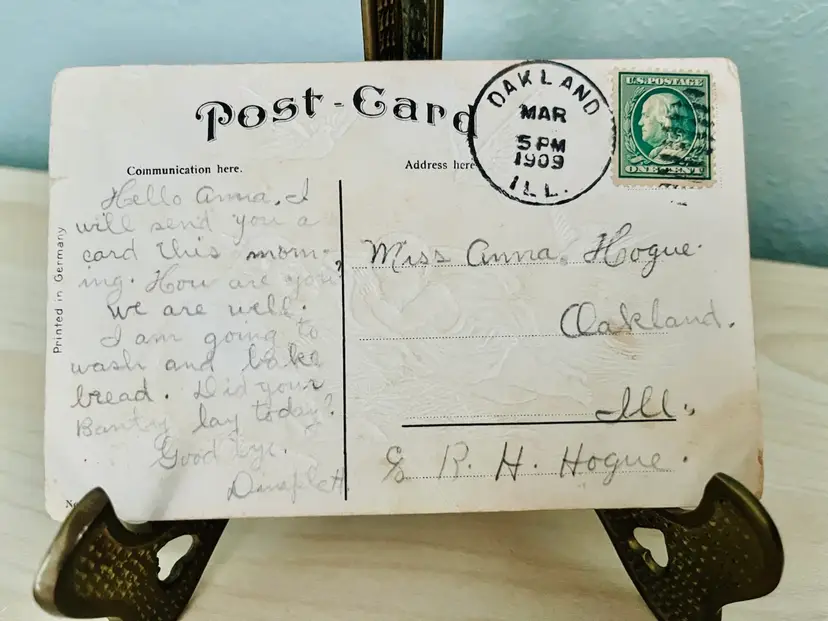 Post-Card
OAKLAND
MAR
5 PM
1909
ILL.
U.S. POSTAGE
ONE CENT
Communication here.
Address here
Printed in Germany
Hello Anna, I
will send you a
card this morn-
ing. How are you?
We are well.
I am going to
wash and bake
bread. Did your
Banty lay today?
Good bye.
Miss Anna Hogue.
Oakland.
Ill.
c/o R. H. Hogue.